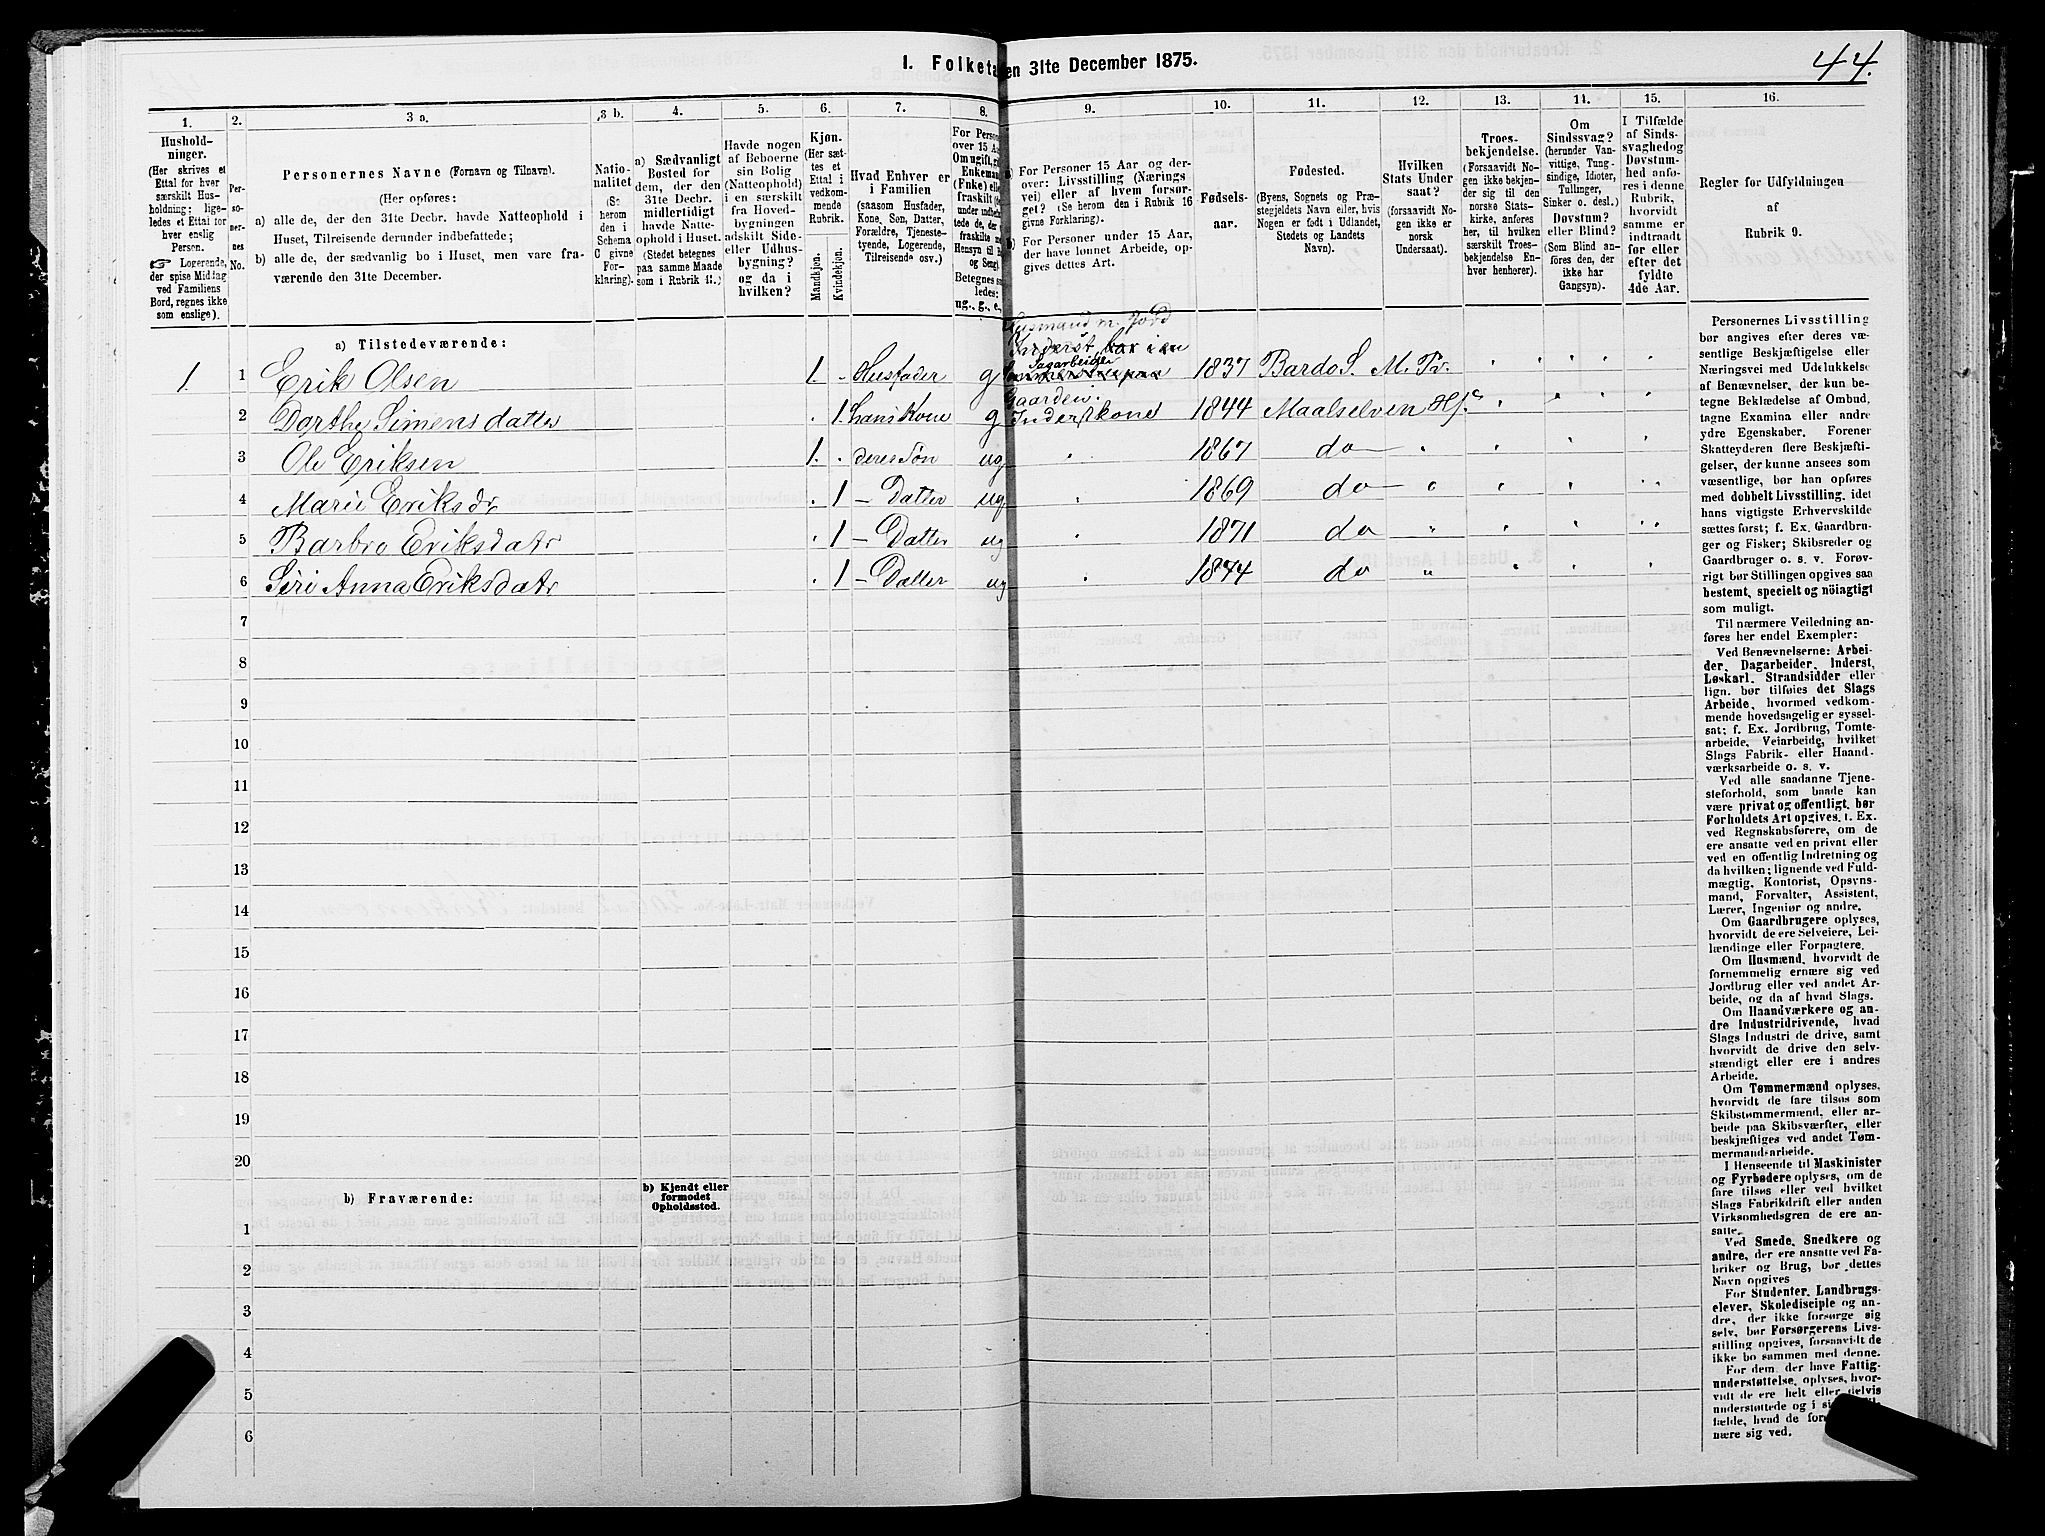 I. Folketa en 31te December 1875.
44.
1.
Hushold-
ninger.
(Her skrives et
Ettal for hver
særskilt Hus-
holdning; lige-
ledes et Ettal for
hver enslig
Person.
☞ Logerende,
der spise Middag
ved Familiens
Bord, regnes ikke
som enslige).
2.
Per-
so-
ner-
nes
No.
3 a.
Personernes Navne (Fornavn og Tilnavn).
(Her opføres:
a) alle de, der den 31te Decbr. havde Natteophold i
Huset, Tilreisende derunder indbefattede;
b) alle de, der sædvanlig bo i Huset, men vare fra-
værende den 31te December.
3 b.
Natio-
nalitet
(Se
herom
den i
Schema
C givne
For-
klaring).
4.
a) Sædvanligt
Bosted for
dem, der den
31te Decbr.
midlertidigt
havde Natte-
ophold i Huset.
(Stedet betegnes
paa samme Maade
som i Rubrik 11.)
5.
Havde nogen
af Beboerne
sin Bolig
(Natteophold)
i en særskilt
fra Hoved-
bygningen
adskilt Side-
eller Udhus-
bygning?
og da i
hvilken?
6.
Kjøn.
(Her sæt-
tes et
Ettal i
vedkom-
mende
Rubrik.
Mandkjøn.
Kvindekjøn.
7.
Hvad Enhver er
i Familien
(saasom Husfader,
Kone, Søn, Datter,
Forældre, Tjeneste-
tyende, Logerende,
Tilreisende osv.)
8.
For Person
over 15 Aa
Om ugift, g
Enkeman
(Fnke) ell
fraskilt (
under indbef
tede de, der
fraskilte m
Hensyn til B
og Seng).
Betegnes s
ledes:
ug., g., e.,
9.
For Personer 15 Aar og der-
over: Livsstilling (Nærings
vei) eller af hvem forsør-
get? (Se herom den i Rubrik 16
givne Forklaring).
For Personer under 15 Aar,
der have lønnet Arbeide, op-
gives dettes Art.
10.
Fødsels-
aar.
11.
Fødested.
(Byens, Sognets og Præ-
stegjeldets Navn eller, hvis
Nogen er født i Udlandet,
Stedets og Landets
Navn).
12.
Hvilken
Stats Under
saat?
(forsaavidt No-
gen ikke er
norsk
Undersaat).
13.
Troes-
bekjendelse.
(Forsaavidt No-
gen ikke bekjen-
der sig til den
norske Stats-
kirke, anføres
her, til hvilken
særskilt Troes-
bekjendelse En-
hver henhører).
14.
Om
Sindssvag?
(herunder Van-
vittige, Tung-
sindige, Idioter,
Tullinger,
Sinker o. desl.)
Døvstum?
eller Blind?
(Som Blind an-
føres den, der
ikke har
Gangsyn).
15.
I Tilfælde
af Sinds-
svaghed og
Døvstum-
hed anfø-
res i denne
Rubrik,
hvorvidt
samme er
indtraadt
før eller
efter det
fyldte
4de Aar.
16.
Regler for Udfyldningen
af
Rubrik 9.
a) Tilstedeværende:
Husmand m. Jord
Inderst
Sagarbeider
1. 1 Erik Olsen 1. Husfader g 1837 Bardo S. M. Pr.
Gaarden.
2 Dorthe Simensdatter 1. hans Kone g Inderstkone 1844 Maalselven
3 Ole Eriksen 1. deres Søn ug 1867 do
4 Marie Eriksdr 1 – Datter ug 1869 do
5 Barbro Eriksdatr 1 – Datter ug 1871 do
6 Siri Anna Eriksdatr 1 – Datter ug 1874 do
7
8
9
10
11
12
13
14
15
16
17
18
19
20
b) Fraværende:
b) Kjendt eller
formodet
Opholdssted.
1
2
3
4
5
6
Personernes Livsstilling
bør angives efter deres væ-
sentlige Beskjæftigelse eller
Næringsvei med Udelukkelse
af Benævnelser, der kun be-
tegne Beklædelse af Ombud,
tagne Examina eller andre
ydre Egenskaber. Forener
Skatteyderen flere Beskjæfti-
gelser, der kunne ansees som
væsentlige, bør han opføres
med dobbelt Livsstilling, idet
hans vigtigste Erhvervskilde
sættes først; f. Ex. Gaardbru-
ger og Fisker; Skibsreder og
Gaardbruger o. s. v. Forøv-
rigt bør Stillingen opgives saa
bestemt, specielt og nöiagtigt
som muligt.
Til nærmere Veiledning an-
føres her endel Exempler:
Ved Benævnelserne: Arbei-
der, Dagarbeider, Inderst,
Løskarl, Strandsidder eller
lign. bør tilføies det Slags
Arbeide, hvormed vedkom-
mende hovedsagelig er syssel-
sat; f. Ex. Jordbrug, Tomte-
arbeide, Veiarbeide, hvilket
Slags Fabrik- eller Haand-
værksarbeide o. s. v.
Ved alle saadanne Tjene-
steforhold, som baade kan
være privat og offentligt, bør
Forholdets Art opgives, f. Ex.
ved Regnskabsførere, om de
ere ansatte ved en privat eller
ved en offentlig Indretning og
da hvilken; lignende ved Fuld-
mægtig, Kontorist, Opsyns-
mand, Forvalter, Assistent,
Lærer, Ingeniør og andre.
Om Gaardbrugere oplyses,
hvorvidt de ere Selveiere, Lei-
lændinge eller Forpagtere.
Om Husmænd, hvorvidt de
fornemmelig ernære sig ved
Jordbrug eller ved andet Ar-
beide, og da af hvad Slags.
Om Haandværkere og an-
dre Industridrivende, hvad
Slags Industri de drive, samt
hvorvidt de drive den selv-
stændigt eller ere i andres
Arbeide.
Om Tømmermænd oplyses,
hvorvidt de fare tilsøs som
Skibstømmermænd, eller ar-
beide paa Skibsværfter, eller
beskjæftiges ved andet Tøm-
mermandsarbeide.
I Henseende til Maskinister
og Fyrbødere oplyses, om de
fare tilsøs eller ved hvilket
Slags Fabrikdrift eller anden
Virksomhedsgren de ere an-
satte.
Ved Smede, Snedkere og
andre, der ere ansatte ved Fa-
briker og Brug, bør dettes
Navn opgives
For Studenter, Landbrugs-
elever, Skoledisciple og an-
dre, der ikke forsørge sig
selv, bør Forsørgerens Livs-
stilling opgives, forsaavidt de
ikke bo sammen med denne.
For dem, der have Fattig-
understøttelse, oplyses, hvor-
vidt de ere helt eller delvis
understøttede og i si
fælde, hvad de for
nære sig ved.